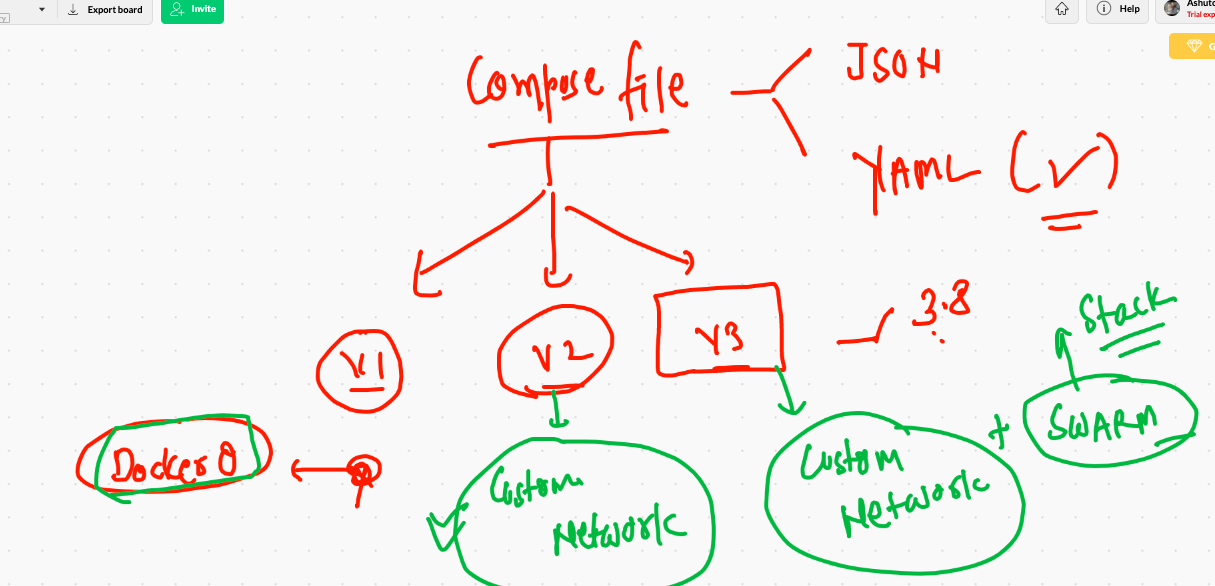 Export board
Invite
Help
Ashuto
Trial exp
G
Compose file
JSON
YAML (✓)
V1
V2
V3
3.8
Stack
SWARM
Docker0
Custom
Network
Custom
Network
+